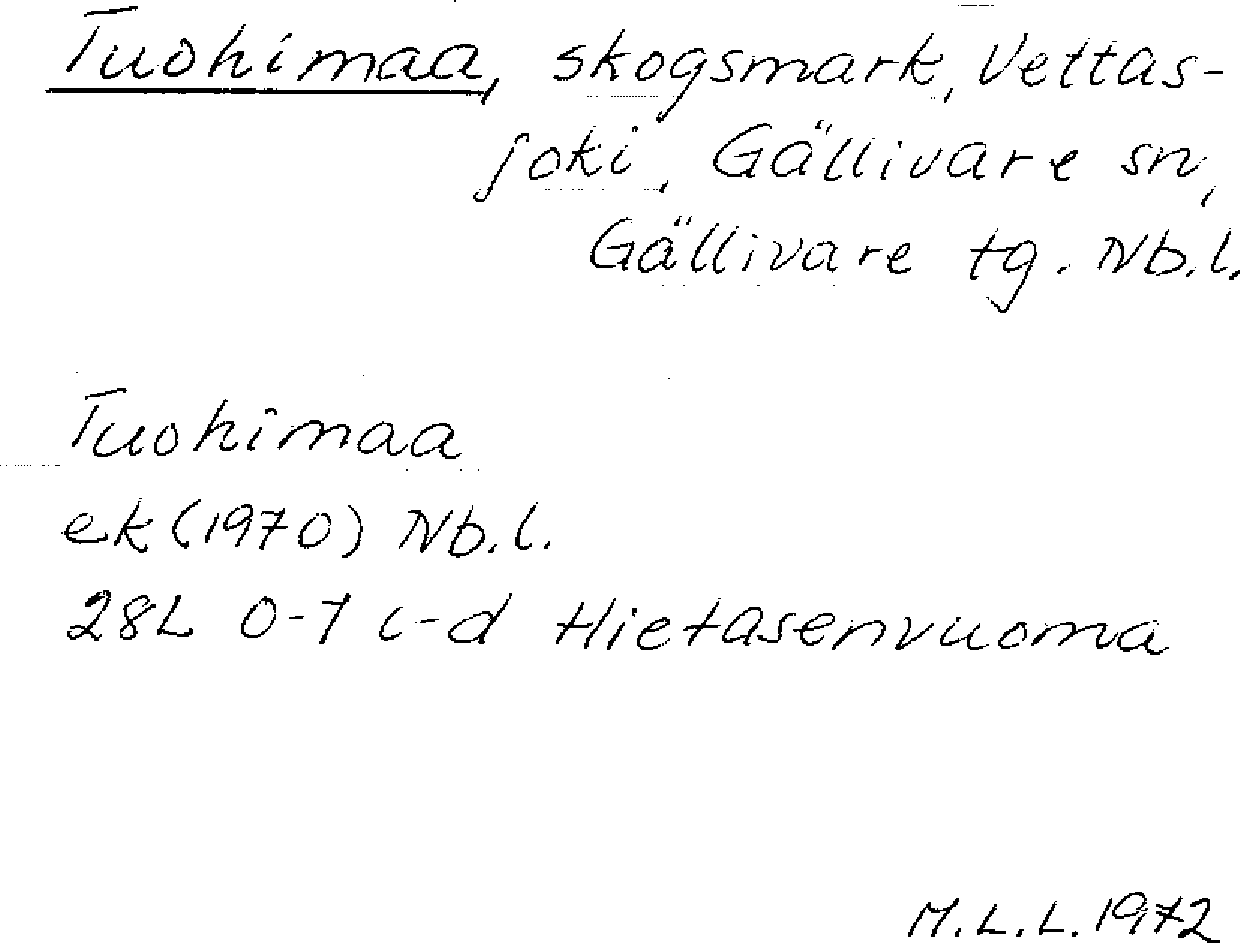 Tuohimaa, skogsmark, Vettas-
joki, Gällivare sn,
Gällivare tg. Nb.l.
Tuohimaa
ek (1970) Nb.l.
28L 0-1 c-d Hietasenvuoma
M.L.L. 1972